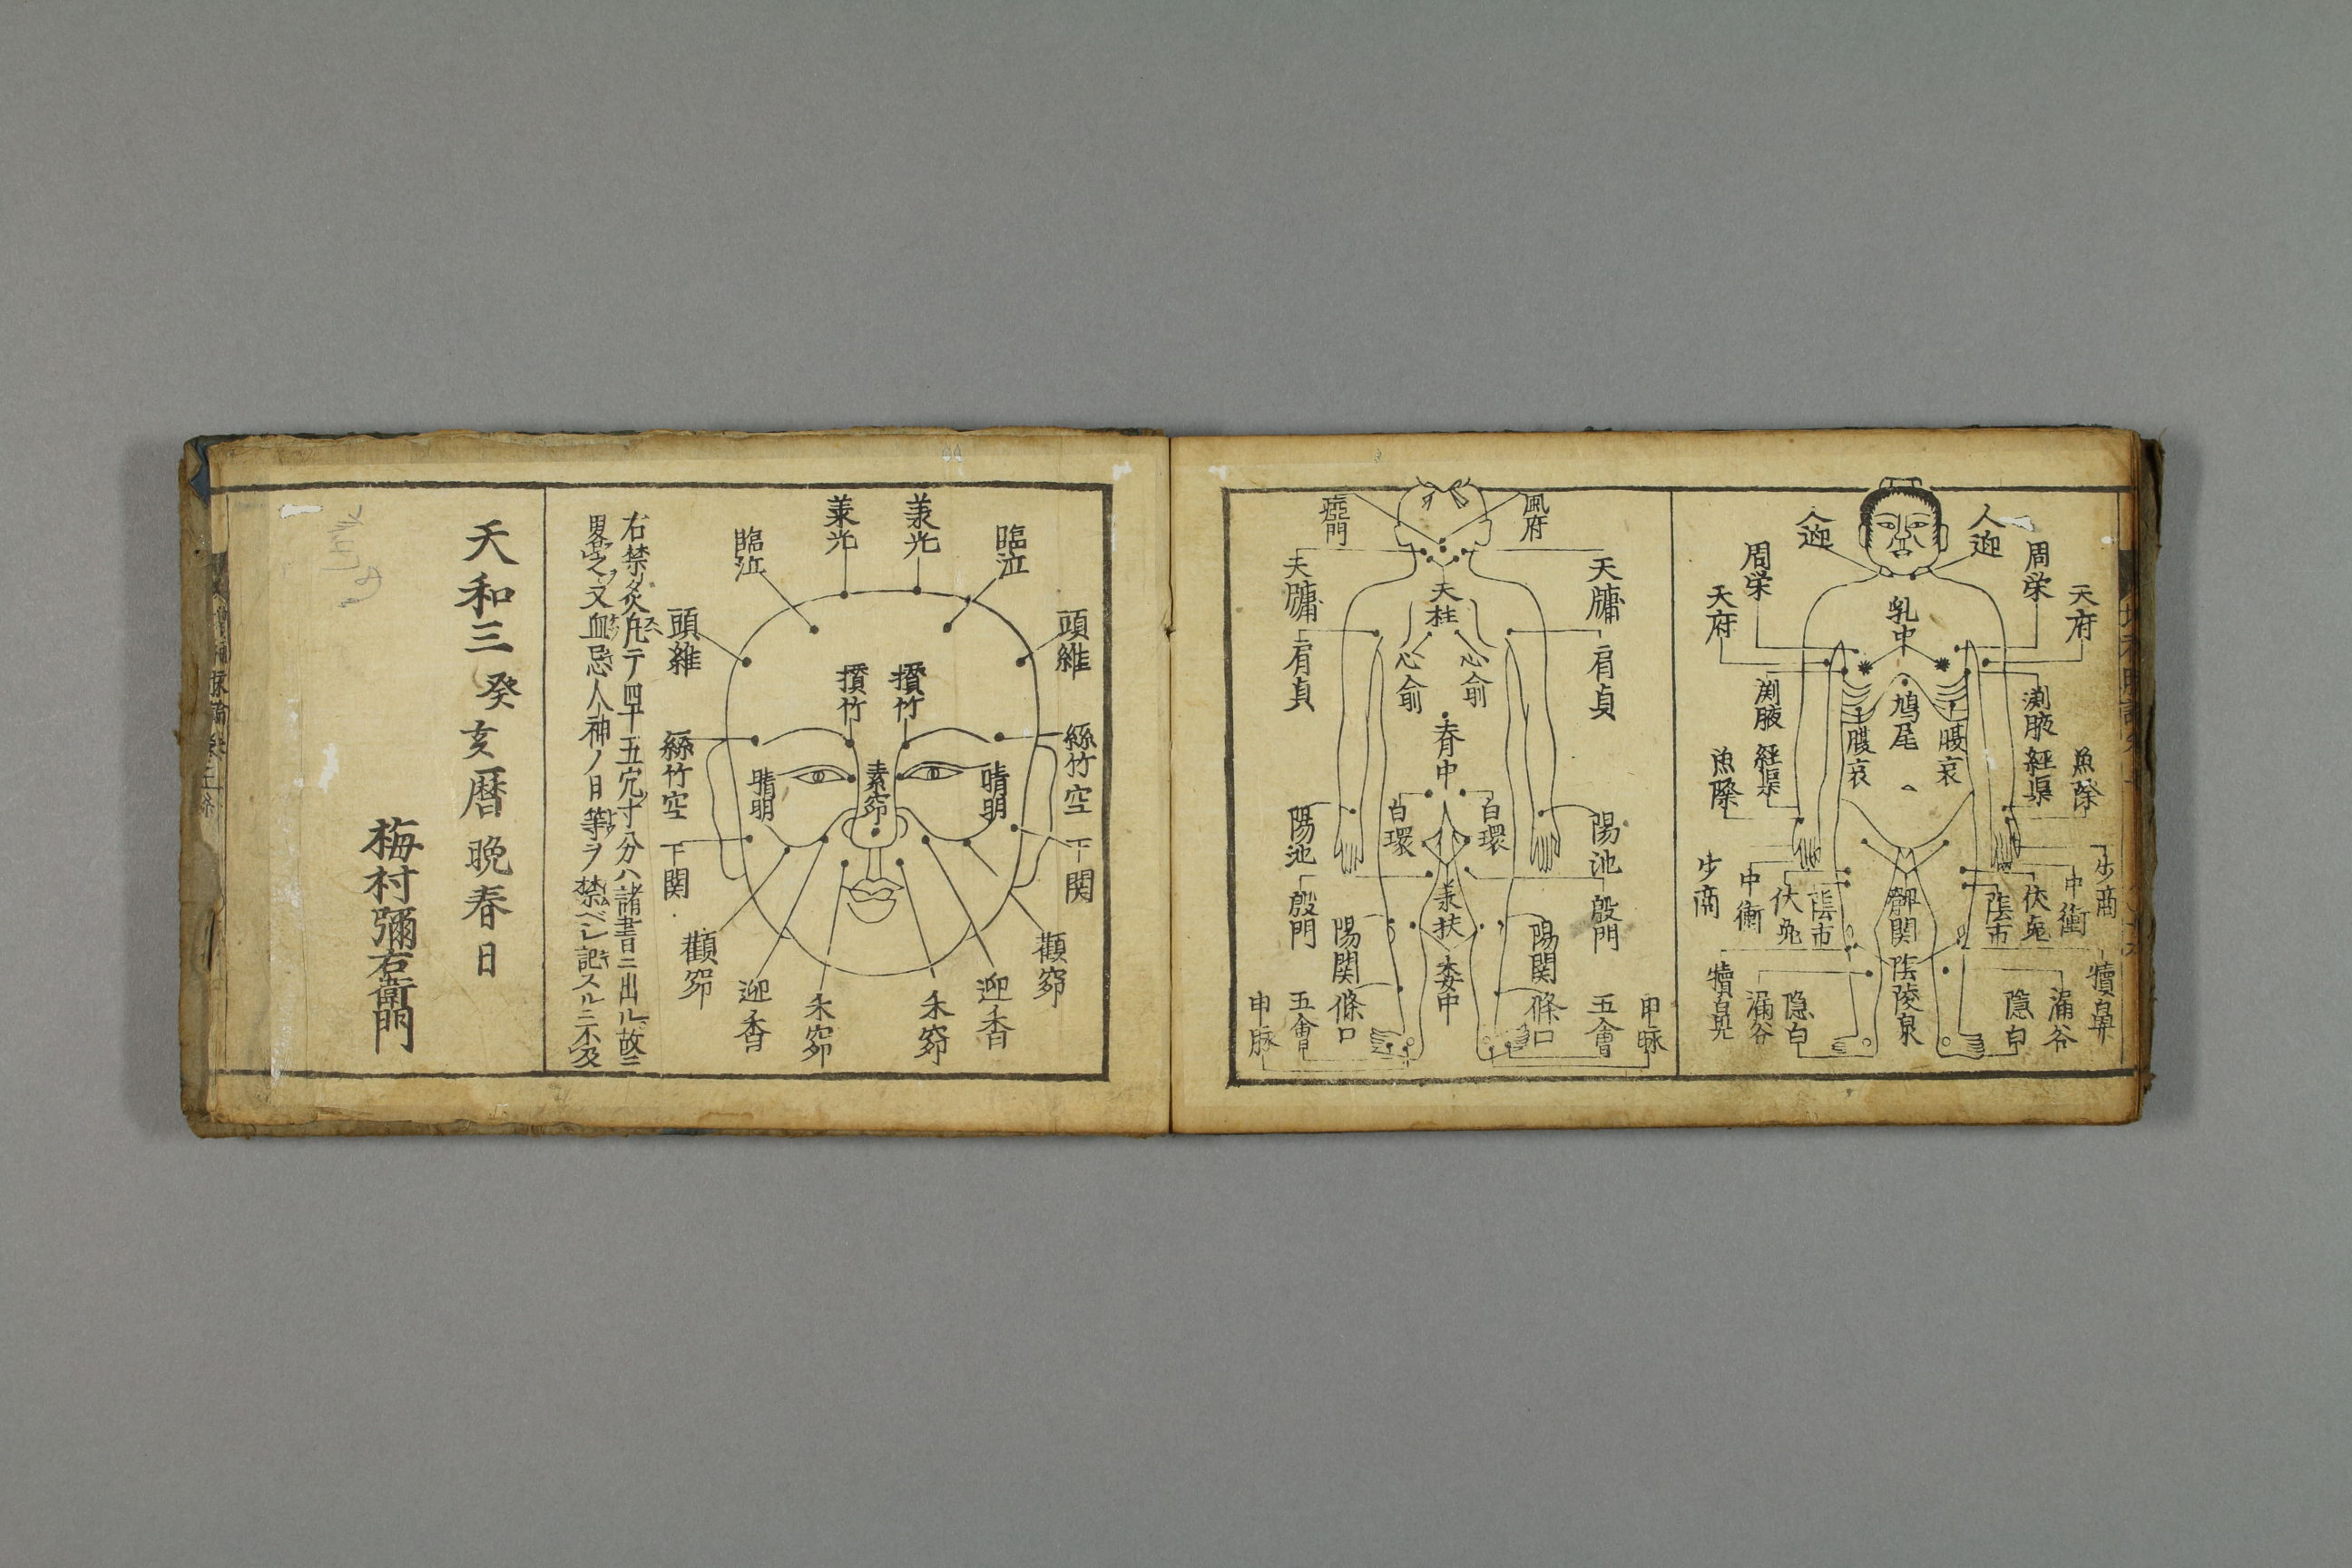 人迎
人迎
周栄
周栄
天府
天府
乳中
渕腋
渕腋
鳩尾
腹哀
腹哀
経渠
経渠
魚際
魚際
少商
少商
中衝
中衝
伏兎
伏兎
陰市
陰市
髀関
犢鼻
犢鼻
漏谷
漏谷
隠白
隠白
陰陵泉
風府
瘂門
天牖
天牖
天柱
肩貞
肩貞
心俞
心俞
脊中
白環
白環
陽池
陽池
殷門
殷門
承扶
陽関
陽関
委中
條口
條口
五會
五會
申脉
申脉
承光
承光
臨泣
臨泣
頭維
頭維
攅竹
攅竹
絲竹空
絲竹空
睛明
睛明
素窌
下関
下関
顴窌
顴窌
迎香
迎香
禾窌
禾窌
右禁灸凢テ四十五穴寸分ハ諸書ニ出ル故ニ
畧之又血忌人神ノ日等ヲ禁ベシ記スルニ不及
天和三癸亥暦晩春日
梅村彌右衛門